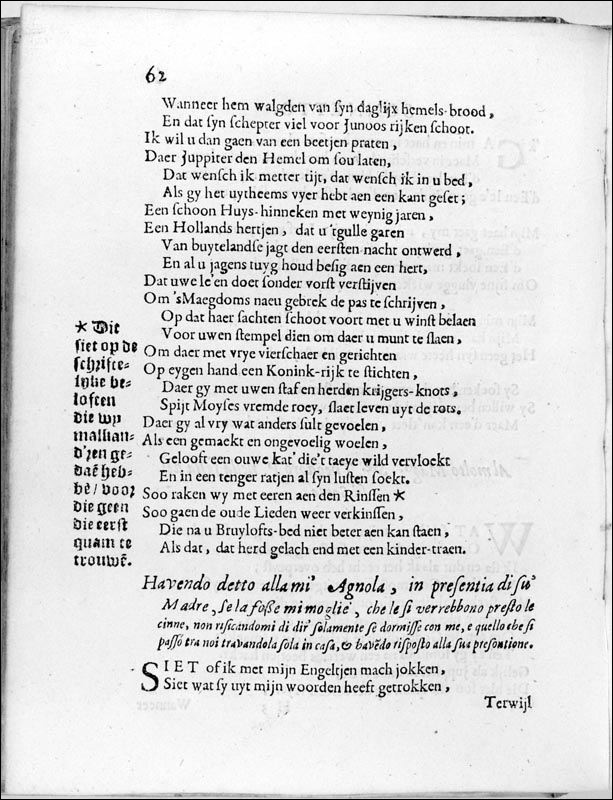 62
Wanneer hem walgden van ſyn daglijx hemels-brood,
En dat ſyn ſchepter viel voor Junoos rijken ſchoot.
Ik wil u dan gaen van een beetjen praten,
Daer Juppiter den Hemel om ſou laten,
Dat wenſch ik metter tijt, dat wenſch ik in u bed,
Als gy het uytheems vyer hebt aen een kant geſet;
Een ſchoon Huys-hinneken met weynig jaren,
Een Hollands hertjen, dat u 'tgulle garen
Van buytelandſe jagt den eerſten nacht ontwerd,
En al u jagens tuyg houd beſig aen een hert,
Dat uwe le'en doet ſonder vorſt verſtijven
Om 'sMaegdoms naeu gebrek de pas te ſchrijven,
Op dat haer ſachten ſchoot voort met u winſt belaen
Voor uwen ſtempel dien om daer u munt te ſlaen,
Om daer met vrye vierſchaer en gerichten
Op eygen hand een Konink-rijk te ſtichten,
Daer gy met uwen ſtaf en herden krijgers-knots,
Spijt Moyſes vremde roey, ſlaet leven uyt de rots.
Daer gy al vry wat anders ſult gevoelen,
Als een gemaekt en ongevoelig woelen,
Gelooft een ouwe kat' die't taeye wild vervloekt
En in een tenger ratjen al ſyn luſten ſoekt.
Soo raken wy met eeren aen den Rinſſen *
Soo gaen de oude Lieden weer verkinſſen,
Die na u Bruylofts-bed niet beter aen kan ſtaen,
Als dat, dat herd gelach end met een kinder-traen.
* Dit
ſiet op de
ſchrifte-
lijke be-
loften
die wy
malkan-
d'ren ge-
daē heb-
bē/ voor
die geen
die eerſt
quam te
trouwē.
Havendo detto alla mi' Agnola, in preſentia di ſu'
Madre, ſe la foße mi moglie', che le ſi verrebbono preſto le
cinne, non riſicandomi di dir' ſolamente ſe dormiſſe con me, e quello che ſi
paſſò tra noi travandola ſola in caſa, & havēdo riſpoſto alla ſua preſontione.
SIET of ik met mijn Engeltjen mach jokken,
Siet wat ſy uyt mijn woorden heeft getrokken,
Terwijl